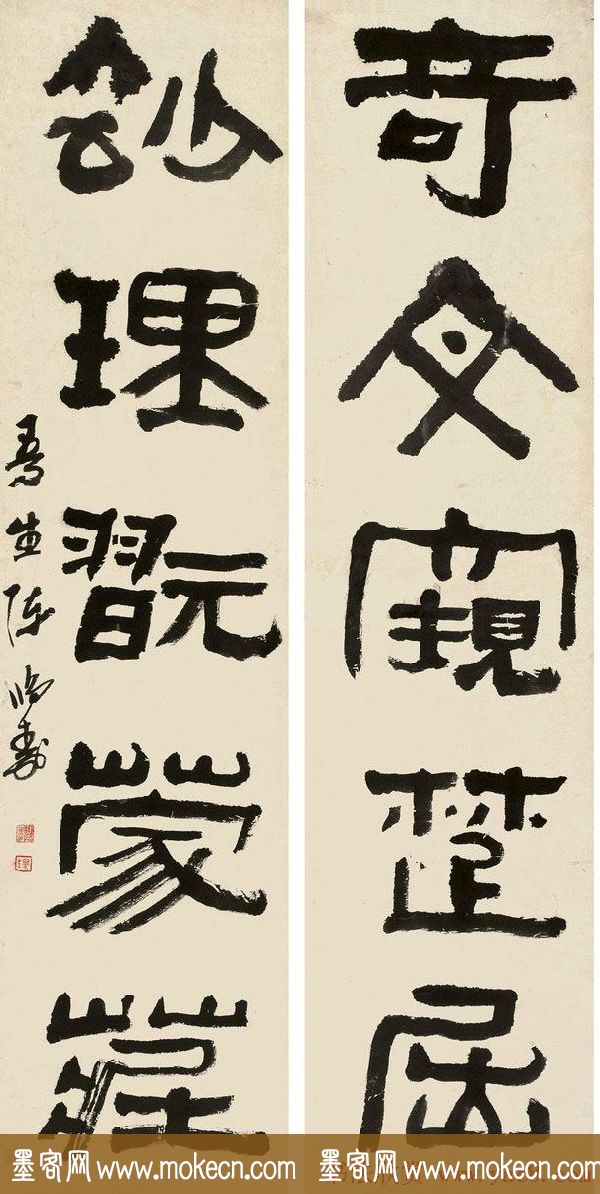 奇文窺楚屈
玅理翫蒙莊
曼生陳鴻壽
墨客网 www.mokecn.com
墨客网 www.mokecn.com